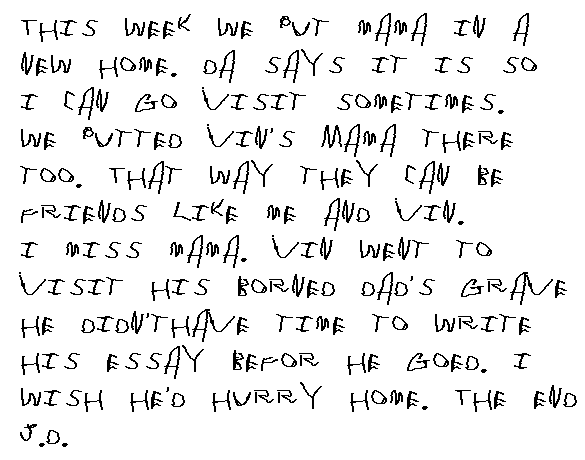 THIS WEEK WE PUT MAMA IN A
NEW HOME. DA SAYS IT IS SO
I CAN GO VISIT SOMETIMES.
WE PUTTED VIN'S MAMA THERE
TOO. THAT WAY THEY CAN BE
FRIENDS LIKE ME AND VIN.
I MISS MAMA. VIN WENT TO
VISIT HIS BORNED DAD'S GRAVE
HE DIDN'T HAVE TIME TO WRITE
HIS ESSAY BEFOR HE GOED. I
WISH HE'D HURRY HOME. THE END
J.D.